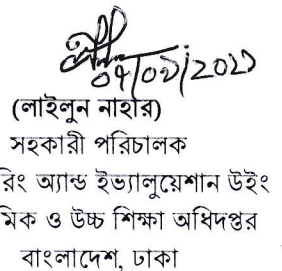 (লাইলুন নাহার)
সহকারী পরিচালক
রিং অ্যান্ড ইভ্যালুয়েশান উইং
মিক ও উচ্চ শিক্ষা অধিদপ্তর
বাংলাদেশ, ঢাকা